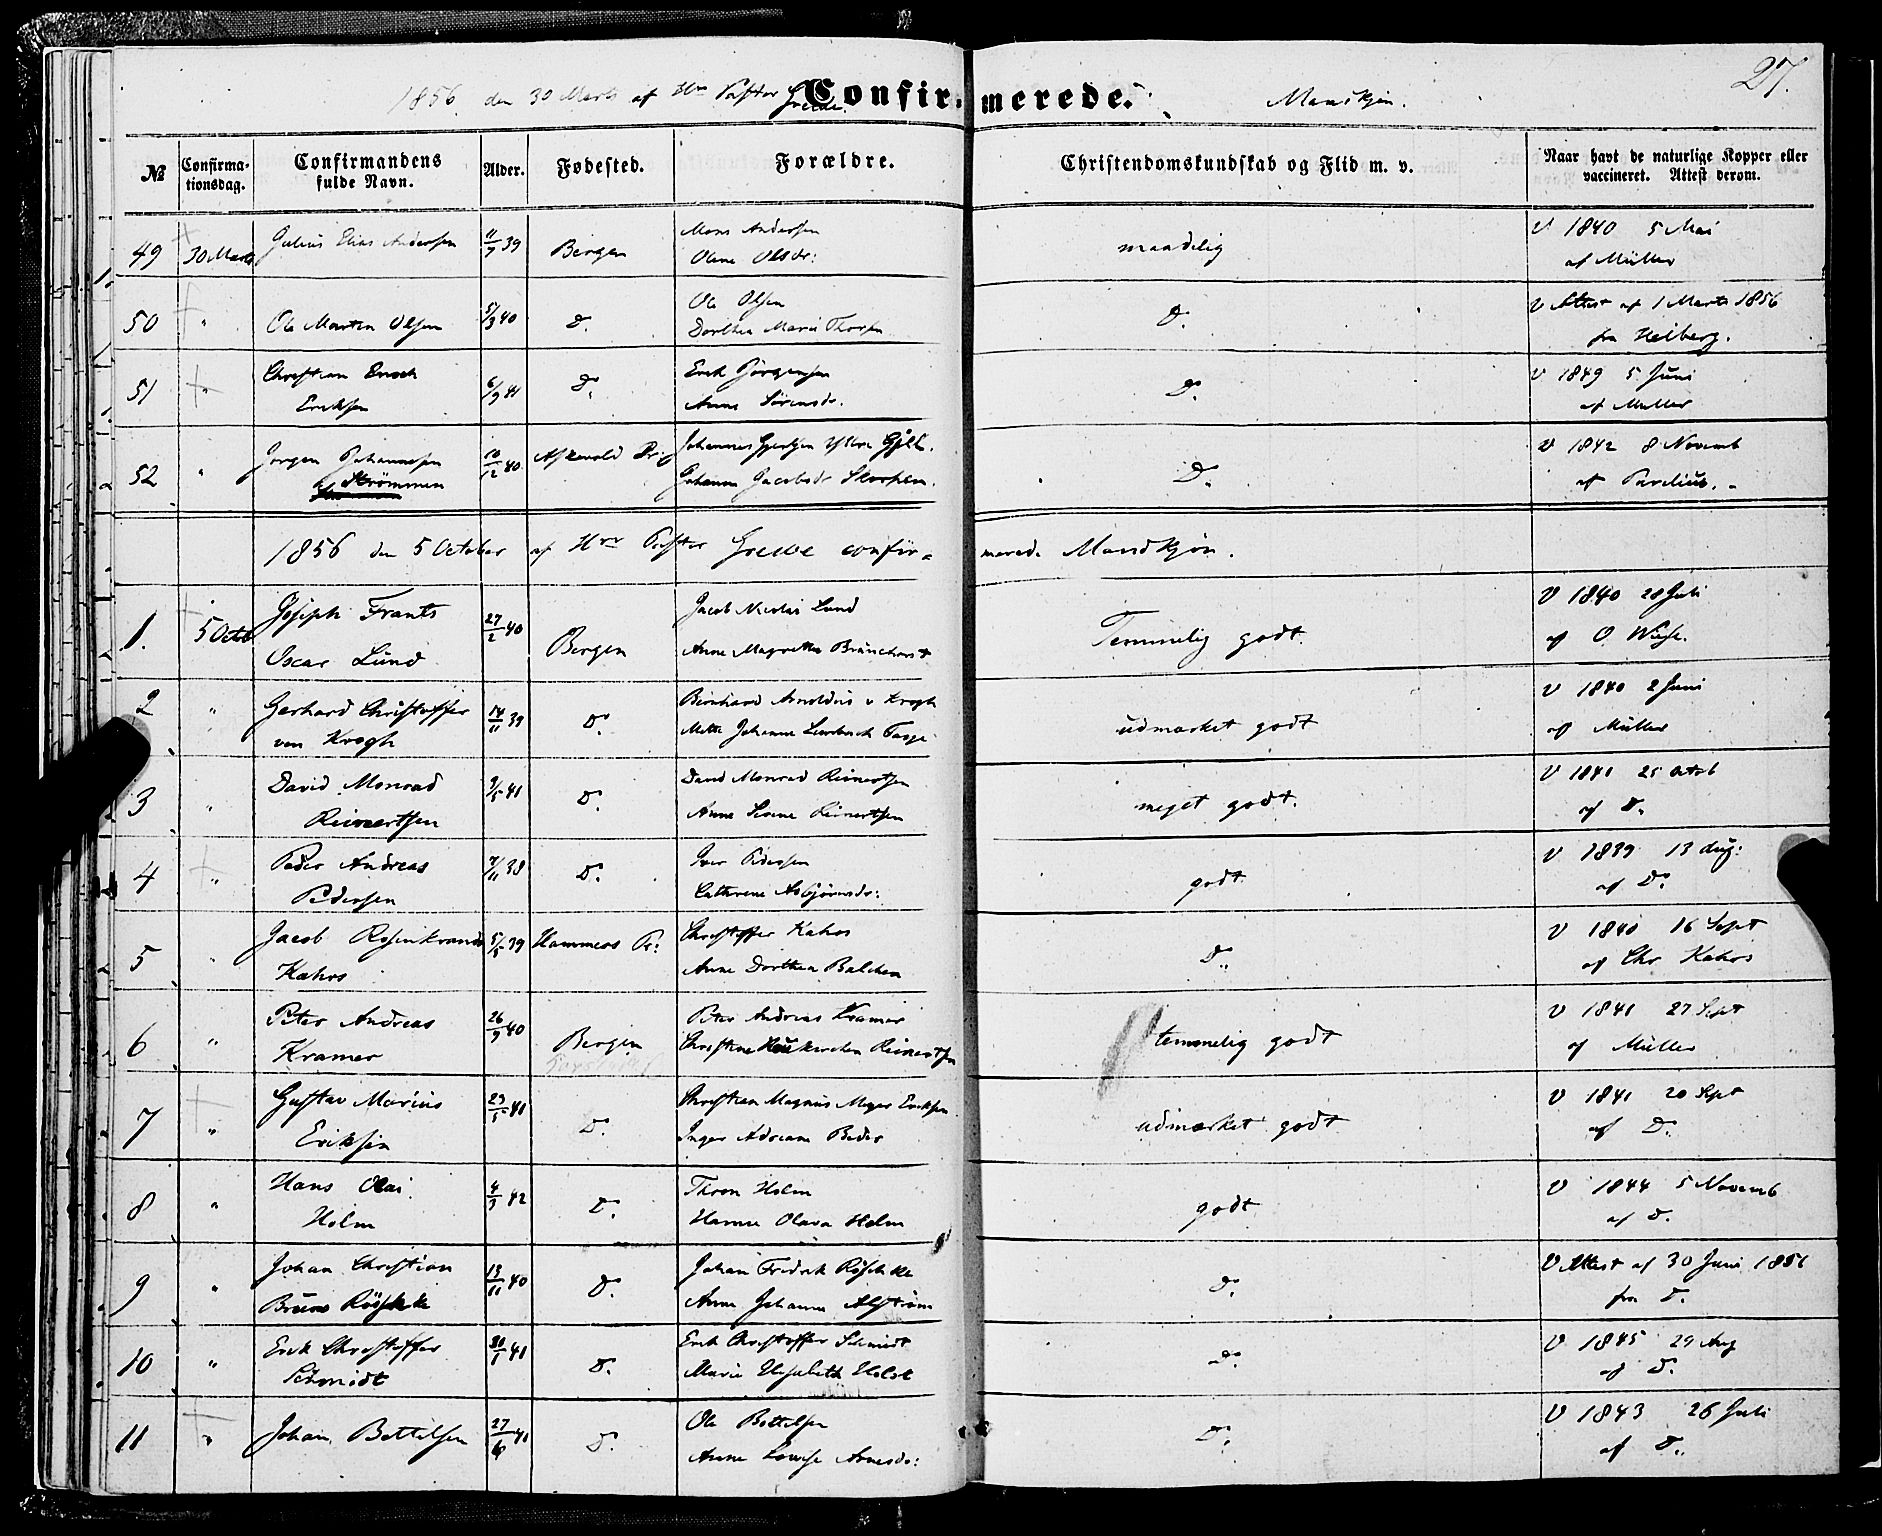 27.
1856 den 30 Marts af Hrr Pastor Grewe Confirmerede. Mandkjøn.
№ Confirmationsdag. Confirmandens fulde Navn. Alder. Fødested. Forældre. Christendomskundskab og Flid m. v. Naar havt de naturlige Kopper eller vaccineret. Attest derom.
49 30 Marts Julius Elias Andersen 11/7 39 Bergen Mons Andersen maadelig V 1840 5 Mai
Olene Olsdr: af Müller
50 " Ole Martin Olsen 5/3 40 Do Ole Olsen Do V Attest af 1 Marts 1856
Dorthea Marie Thorsen fra Heiberg.
51 " Christian Enoch 6/9 41 Do Erik Jørgensen Do V 1849 5 Juni
Eriksen Anne Sørensdr. af Müller
52 " Jørgen Johannesen 10/12 40 Askevold Pr: Johannes Gjertsen V 1842 8 Novemb
Strømmen Johanne Jacobsdr Skorpen. Do af Parelius.
1856 den 5 October af Hrr Pastor Grewe confirmerede Mandkjøn.
1. 5 Octb Joseph Frants 27/2 40 Bergen Jacob Nicolai Lund Temmelig godt V 1840 28 Juli
Oscar Lund Anne Magrethe Brunchorst af O. Wiese.
2 " Gerhard Christoffer 14/11 39 Do Bernhard Arnoldus v Krogh udmærket godt V 1840 2 Juni
von Krogh Mette Johanne Fasge af Müller
3 " David Monrad 9/5 41 Do David Monrad Reinertsen meget godt. V 1841 25 Octb
Reinertsen Anne Severine Reinertsen af Do
4 " Peder Andreas 7/11 38 Do Iver Pedersen godt V 1839 13 Aug:
Pedersen Cathrine Asbjørnsdr: af Do
5 " Jacob Rosenkrands 5/5 39 Hammers Pr: Christoffer Kahrs Do V 1840 16 Sept
Kahrs Anne Dorthea Balchen af Chr Kahrs
6 " Peter Andreas 26/9 40 Bergen Peter Andreas Kramer temmelig godt V 1841 27 Sept
Kramer Christine Neukirchen Reinertsen af Müller
7 " Gustav Marius 23/5 41 Do Christian Magnus Meyer Eriksen udmærket godt V 1841 20 Sept
Eriksen Inger Adriane Beder af Do
8 " Hans Olai 4/3 42 Do Thron Holm godt V 1844 5 Novemb
Holm Hanne Olava Holm af Do
9 " Johan Christian 13/11 40 Do Johan Fredrik Röschke Do V Attest af 30 Juni 1856
Bruno Röschke Anne Johanne Alstrøm fra Do
10 " Erik Christoffer 30/1 41 Do Erik Christoffer Schmidt Do V 1845 29 Aug
Schmidt Marie Elisabeth Holst af Do
11 " Johan Bottelsen 27/6 41 Do Ole Bottelsen Do V 1843 26 Juli
Anne Lovise Arnesdr: af Do